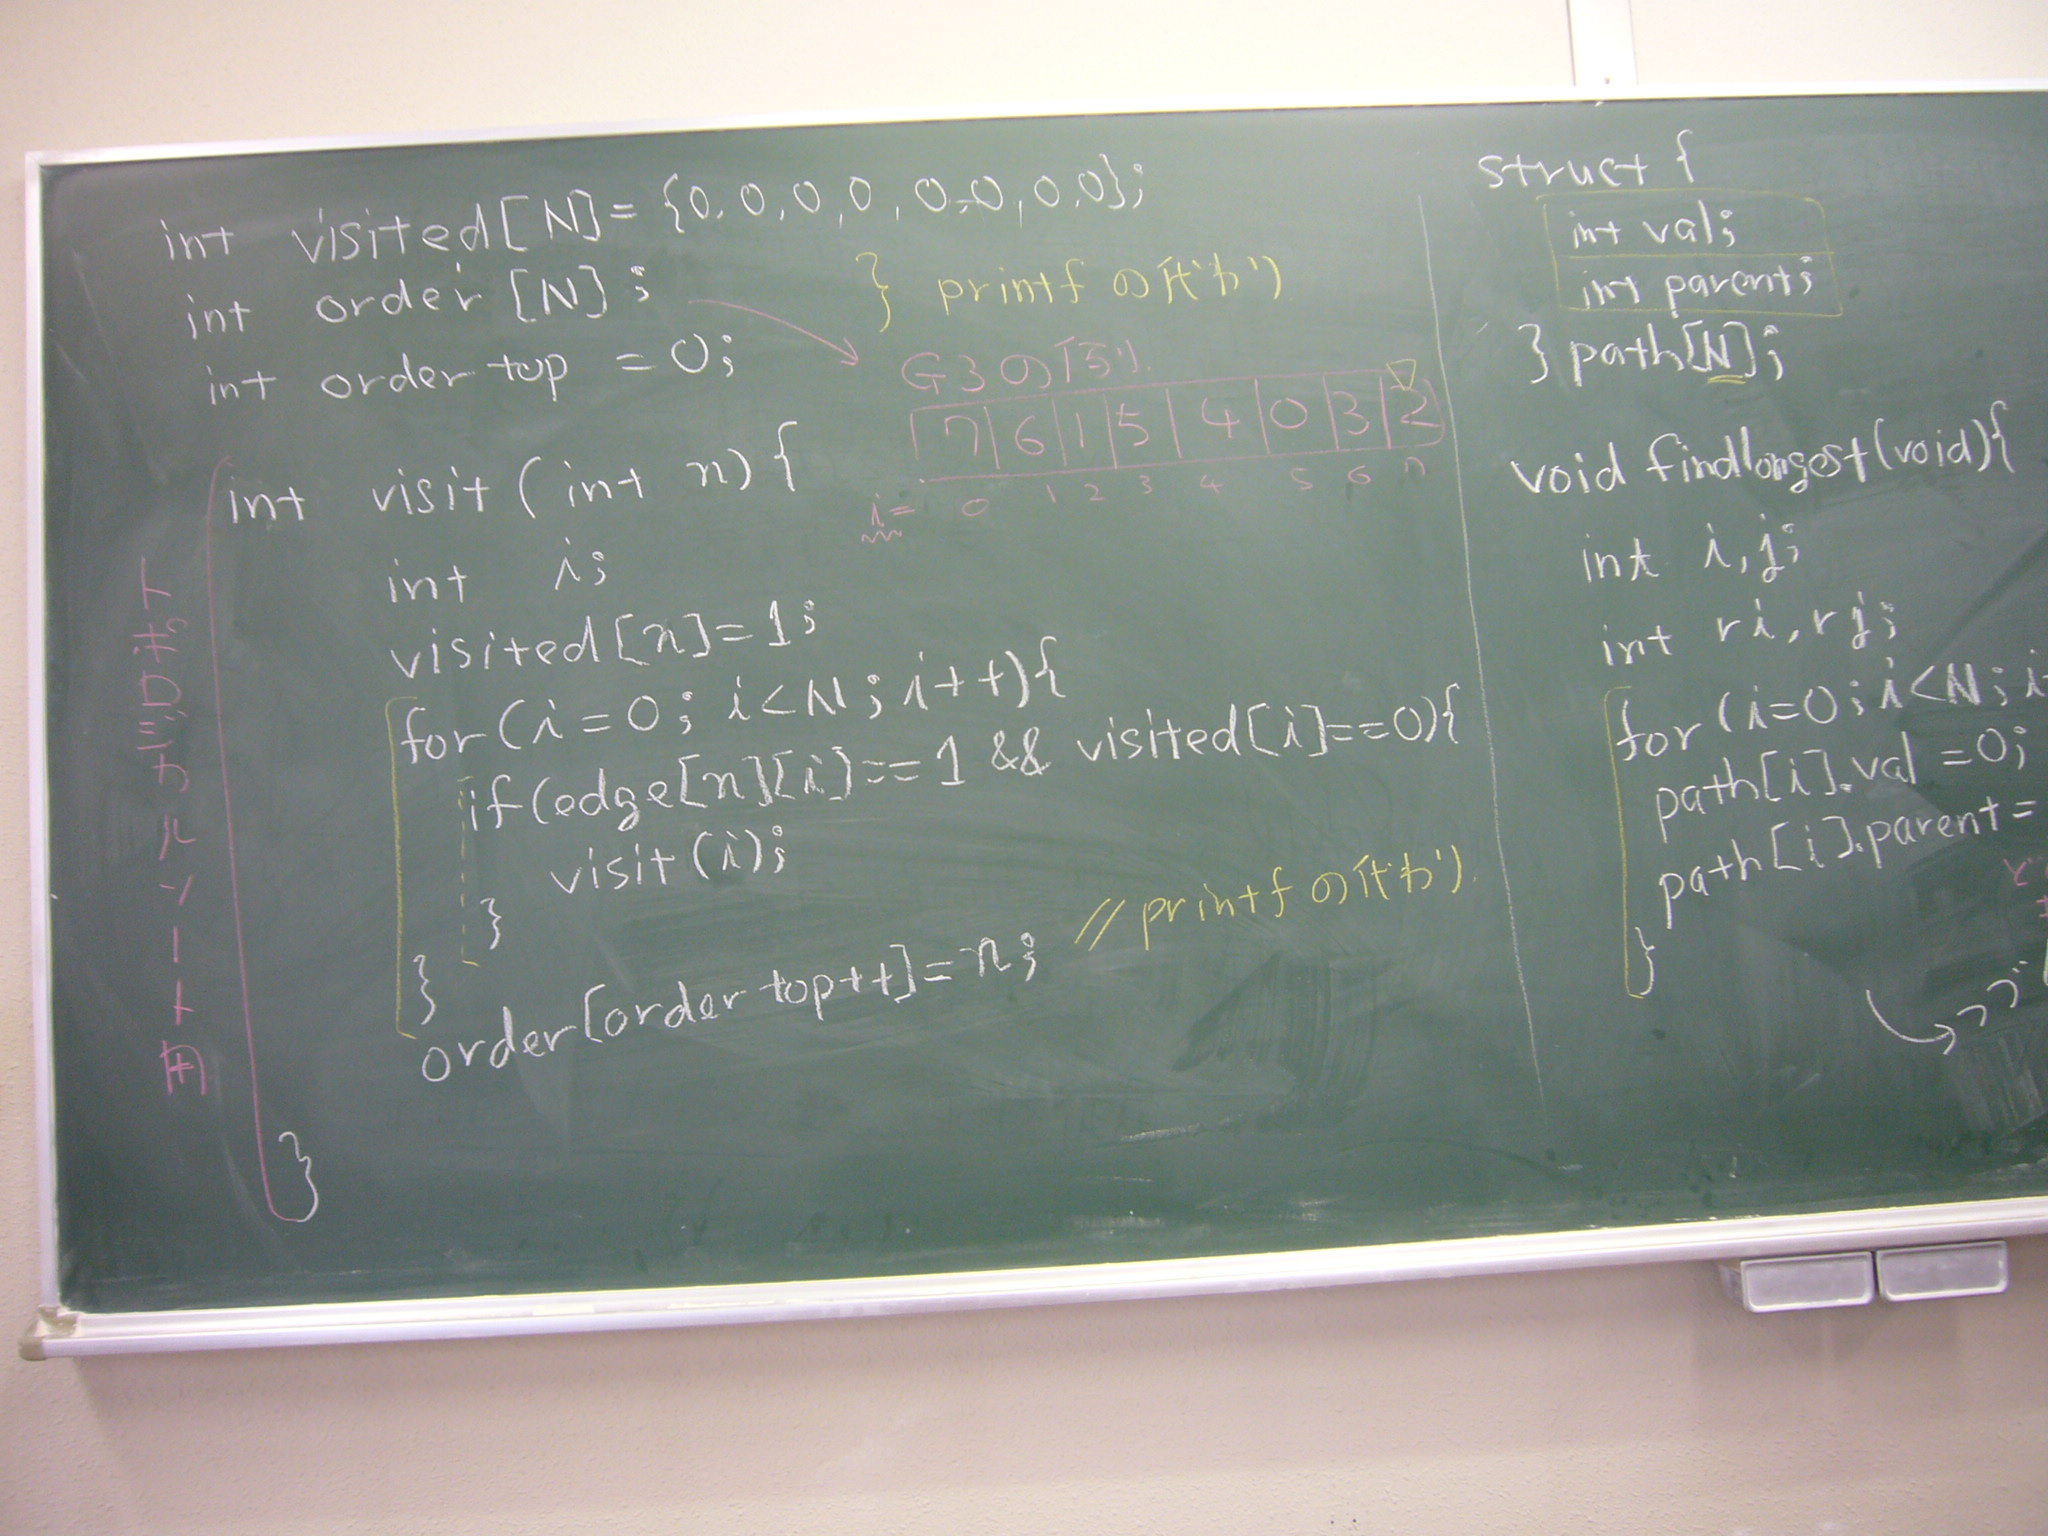 int visited[N]={0,0,0,0,0,0,0,0};
int order[N];
int ordertop=0;
} printfの代わり
G3の例
7 6 1 5 4 0 3 2
i= 0 1 2 3 4 5 6 7
トポロジカルソート用
int visit(int n){
int i;
visited[n]=1;
for(i=0;i<N;i++){
if(edge[n][i]==1 && visited[i]==0){
visit(i);
}
}
order[ordertop++]=n; //printfの代わり
}
struct {
int val;
int parent;
} path[N];
void findlongest(void){
int i,j;
int ri,rj;
for(i=0;i<N;i
path[i].val=0;
path[i].parent=
}